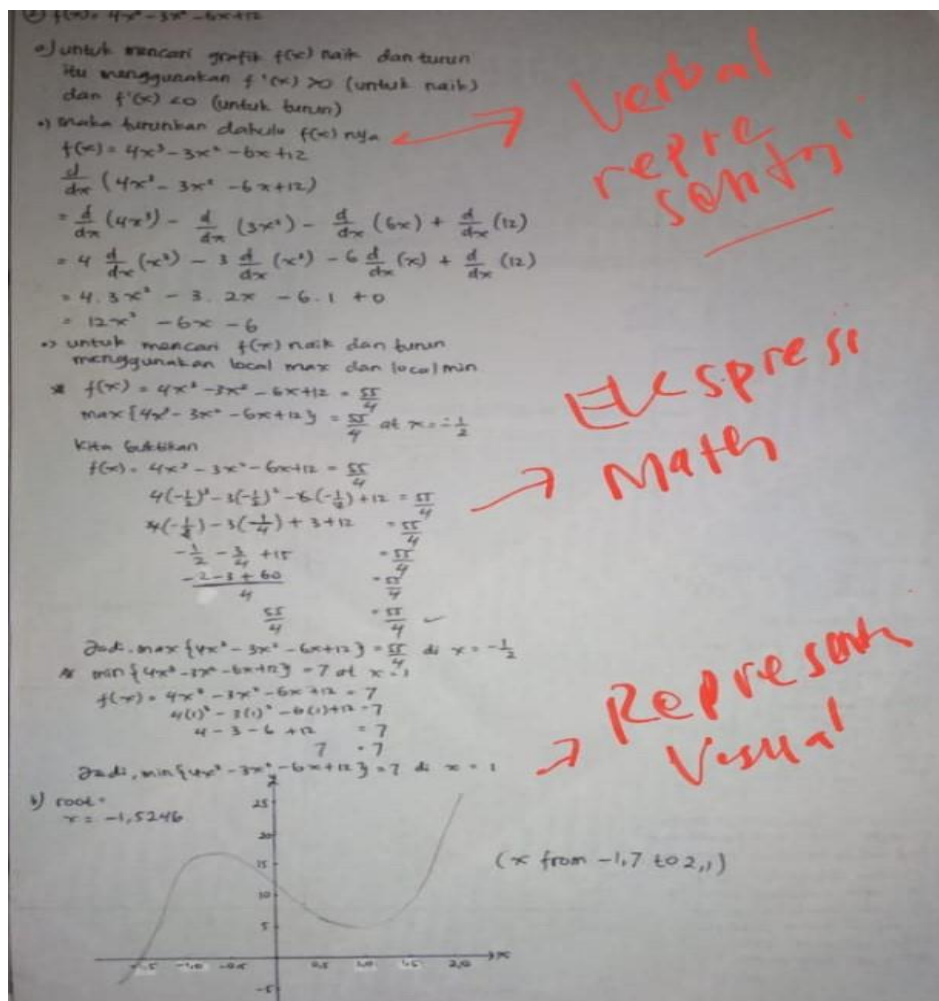 ② f(x) = 4x³ - 3x² - 6x + 12
a) untuk mencari grafik f(x) naik dan turun
itu menggunakan f'(x) >0 (untuk naik)
dan f'(x) <0 (untuk turun)
•) maka turunkan dahulu f(x) nya
f(x) = 4x³ - 3x² - 6x + 12
d/dx (4x³ - 3x² - 6x + 12)
= d/dx (4x³) - d/dx (3x²) - d/dx (6x) + d/dx (12)
= 4 d/dx (x³) - 3 d/dx (x²) - 6 d/dx (x) + d/dx (12)
= 4. 3x² - 3. 2x - 6.1 + 0
= 12x² - 6x - 6
•) untuk mencari f(x) naik dan turun
menggunakan local max dan local min
* f(x) = 4x³ - 3x² - 6x + 12 = 55/4
max {4x³ - 3x² - 6x + 12} = 55/4 at x = -1/2
Kita buktikan
f(x) = 4x³ - 3x² - 6x + 12 = 55/4
4(-1/2)³ - 3(-1/2)² - 6(-1/2) + 12 = 55/4
4(-1/8) - 3(1/4) + 3 + 12 = 55/4
-1/2 - 3/4 + 15 = 55/4
(-2 - 3 + 60)/4 = 55/4
55/4 = 55/4 ✓
Jadi, max {4x³ - 3x² - 6x + 12} = 55/4 di x = -1/2
* min {4x³ - 3x² - 6x + 12} = 7 at x = 1
f(x) = 4x³ - 3x² - 6x + 12 = 7
4(1)³ - 3(1)² - 6(1) + 12 = 7
4 - 3 - 6 + 12 = 7
7 = 7
Jadi, min {4x³ - 3x² - 6x + 12} = 7 di x = 1
b) root =
x = -1,5246
25
20
15
10
5
-1.5 -1.0 -0.5 0.5 1.0 1.5 2,0 x
-5
(x from -1,7 to 2,1)
Verbal
repre
sentasi
Ekspresi
Math
Represent
Visual